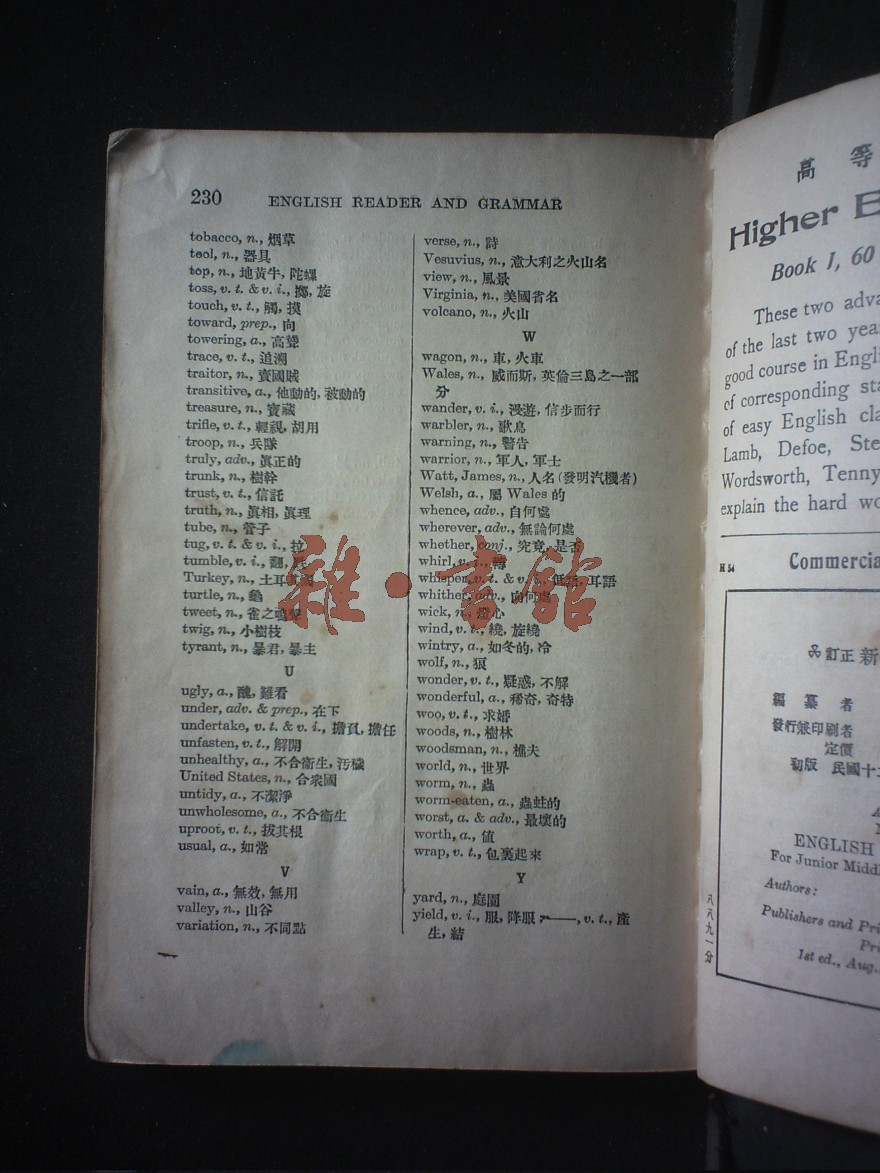 230 ENGLISH READER AND GRAMMAR
tobacco, n., 烟草
tool, n., 器具
top, n., 地黃牛, 陀螺
toss, v. t. & v. i., 擲, 旋
touch, v. t., 觸, 摸
toward, prep., 向
towering, a., 高聳
trace, v. t., 追溯
traitor, n., 賣國賊
transitive, a., 他動的, 被動的
treasure, n., 寶藏
trifle, v. t., 輕視, 胡用
troop, n., 兵隊
truly, adv., 眞正的
trunk, n., 樹幹
trust, v. t., 信託
truth, n., 眞相, 眞理
tube, n., 管子
tug, v. t. & v. i., 拉
tumble, v. i., 翻,
Turkey, n., 土耳其國
turtle, n., 龜
tweet, n., 雀之鳴聲
twig, n., 小樹枝
tyrant, n., 暴君, 暴主
U
ugly, a., 醜, 難看
under, adv. & prep., 在下
undertake, v. t. & v. i., 擔負, 擔任
unfasten, v. t., 解開
unhealthy, a., 不合衞生, 汚穢
United States, n., 合衆國
untidy, a., 不潔淨
unwholesome, a., 不合衞生
uproot, v. t., 拔其根
usual, a., 如常
V
vain, a., 無效, 無用
valley, n., 山谷
variation, n., 不同點
verse, n., 詩
Vesuvius, n., 意大利之火山名
view, n., 風景
Virginia, n., 美國省名
volcano, n., 火山
W
wagon, n., 車, 火車
Wales, n., 威而斯, 英倫三島之一部
分
wander, v. i., 漫遊, 信步而行
warbler, n., 歌鳥
warning, n., 警告
warrior, n., 軍人, 軍士
Watt, James, n., 人名 (發明汽機者)
Welsh, a., 屬 Wales 的
whence, adv., 自何處
wherever, adv., 無論何處
whether, conj., 究竟, 是否
whirl, v. i., 轉
whisper, v. t. & v. i., 低語, 耳語
whither, adv., 向何處
wick, n., 燈心
wind, v. t., 繞, 旋繞
wintry, a., 如冬的, 冷
wolf, n., 狼
wonder, v. t., 疑惑, 不解
wonderful, a., 稀奇, 奇特
woo, v. t., 求婚
woods, n., 樹林
woodsman, n., 樵夫
world, n., 世界
worm, n., 蟲
worm-eaten, a., 蟲蛀的
worst, a. & adv., 最壞的
worth, a., 値
wrap, v. t., 包裹起來
Y
yard, n., 庭園
yield, v. i., 服, 降服 ——, v. t., 產
生, 結
雜·書館
高等
Higher E
Book I, 60
These two adva
of the last two yea
good course in Engli
of corresponding sta
of easy English cla
Lamb, Defoe, Ste
Wordsworth, Tenny
explain the hard wo
H 54
Commercia
訂正 新
編纂者
發行兼印刷者
定價
初版 民國十
ENGLISH
For Junior Middl
Authors:
Publishers and Pri
Pri
1st ed., Aug.,
八八九一分